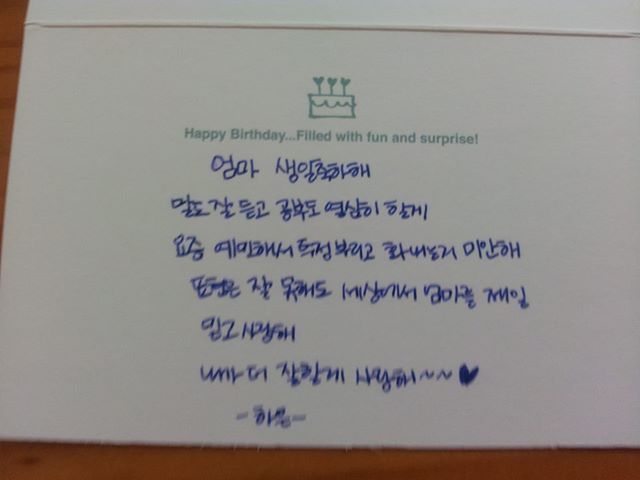 Happy Birthday...Filled with fun and surprise!
엄마 생일축하해
말도 잘 듣고 공부도 열심히 할게
요즘 예민해서 특정부리고 화내는거 미안해
표현은 잘 못해도 세상에서 엄마를 제일
믿고 사랑해
내가 더 잘할게 사랑해~~♥